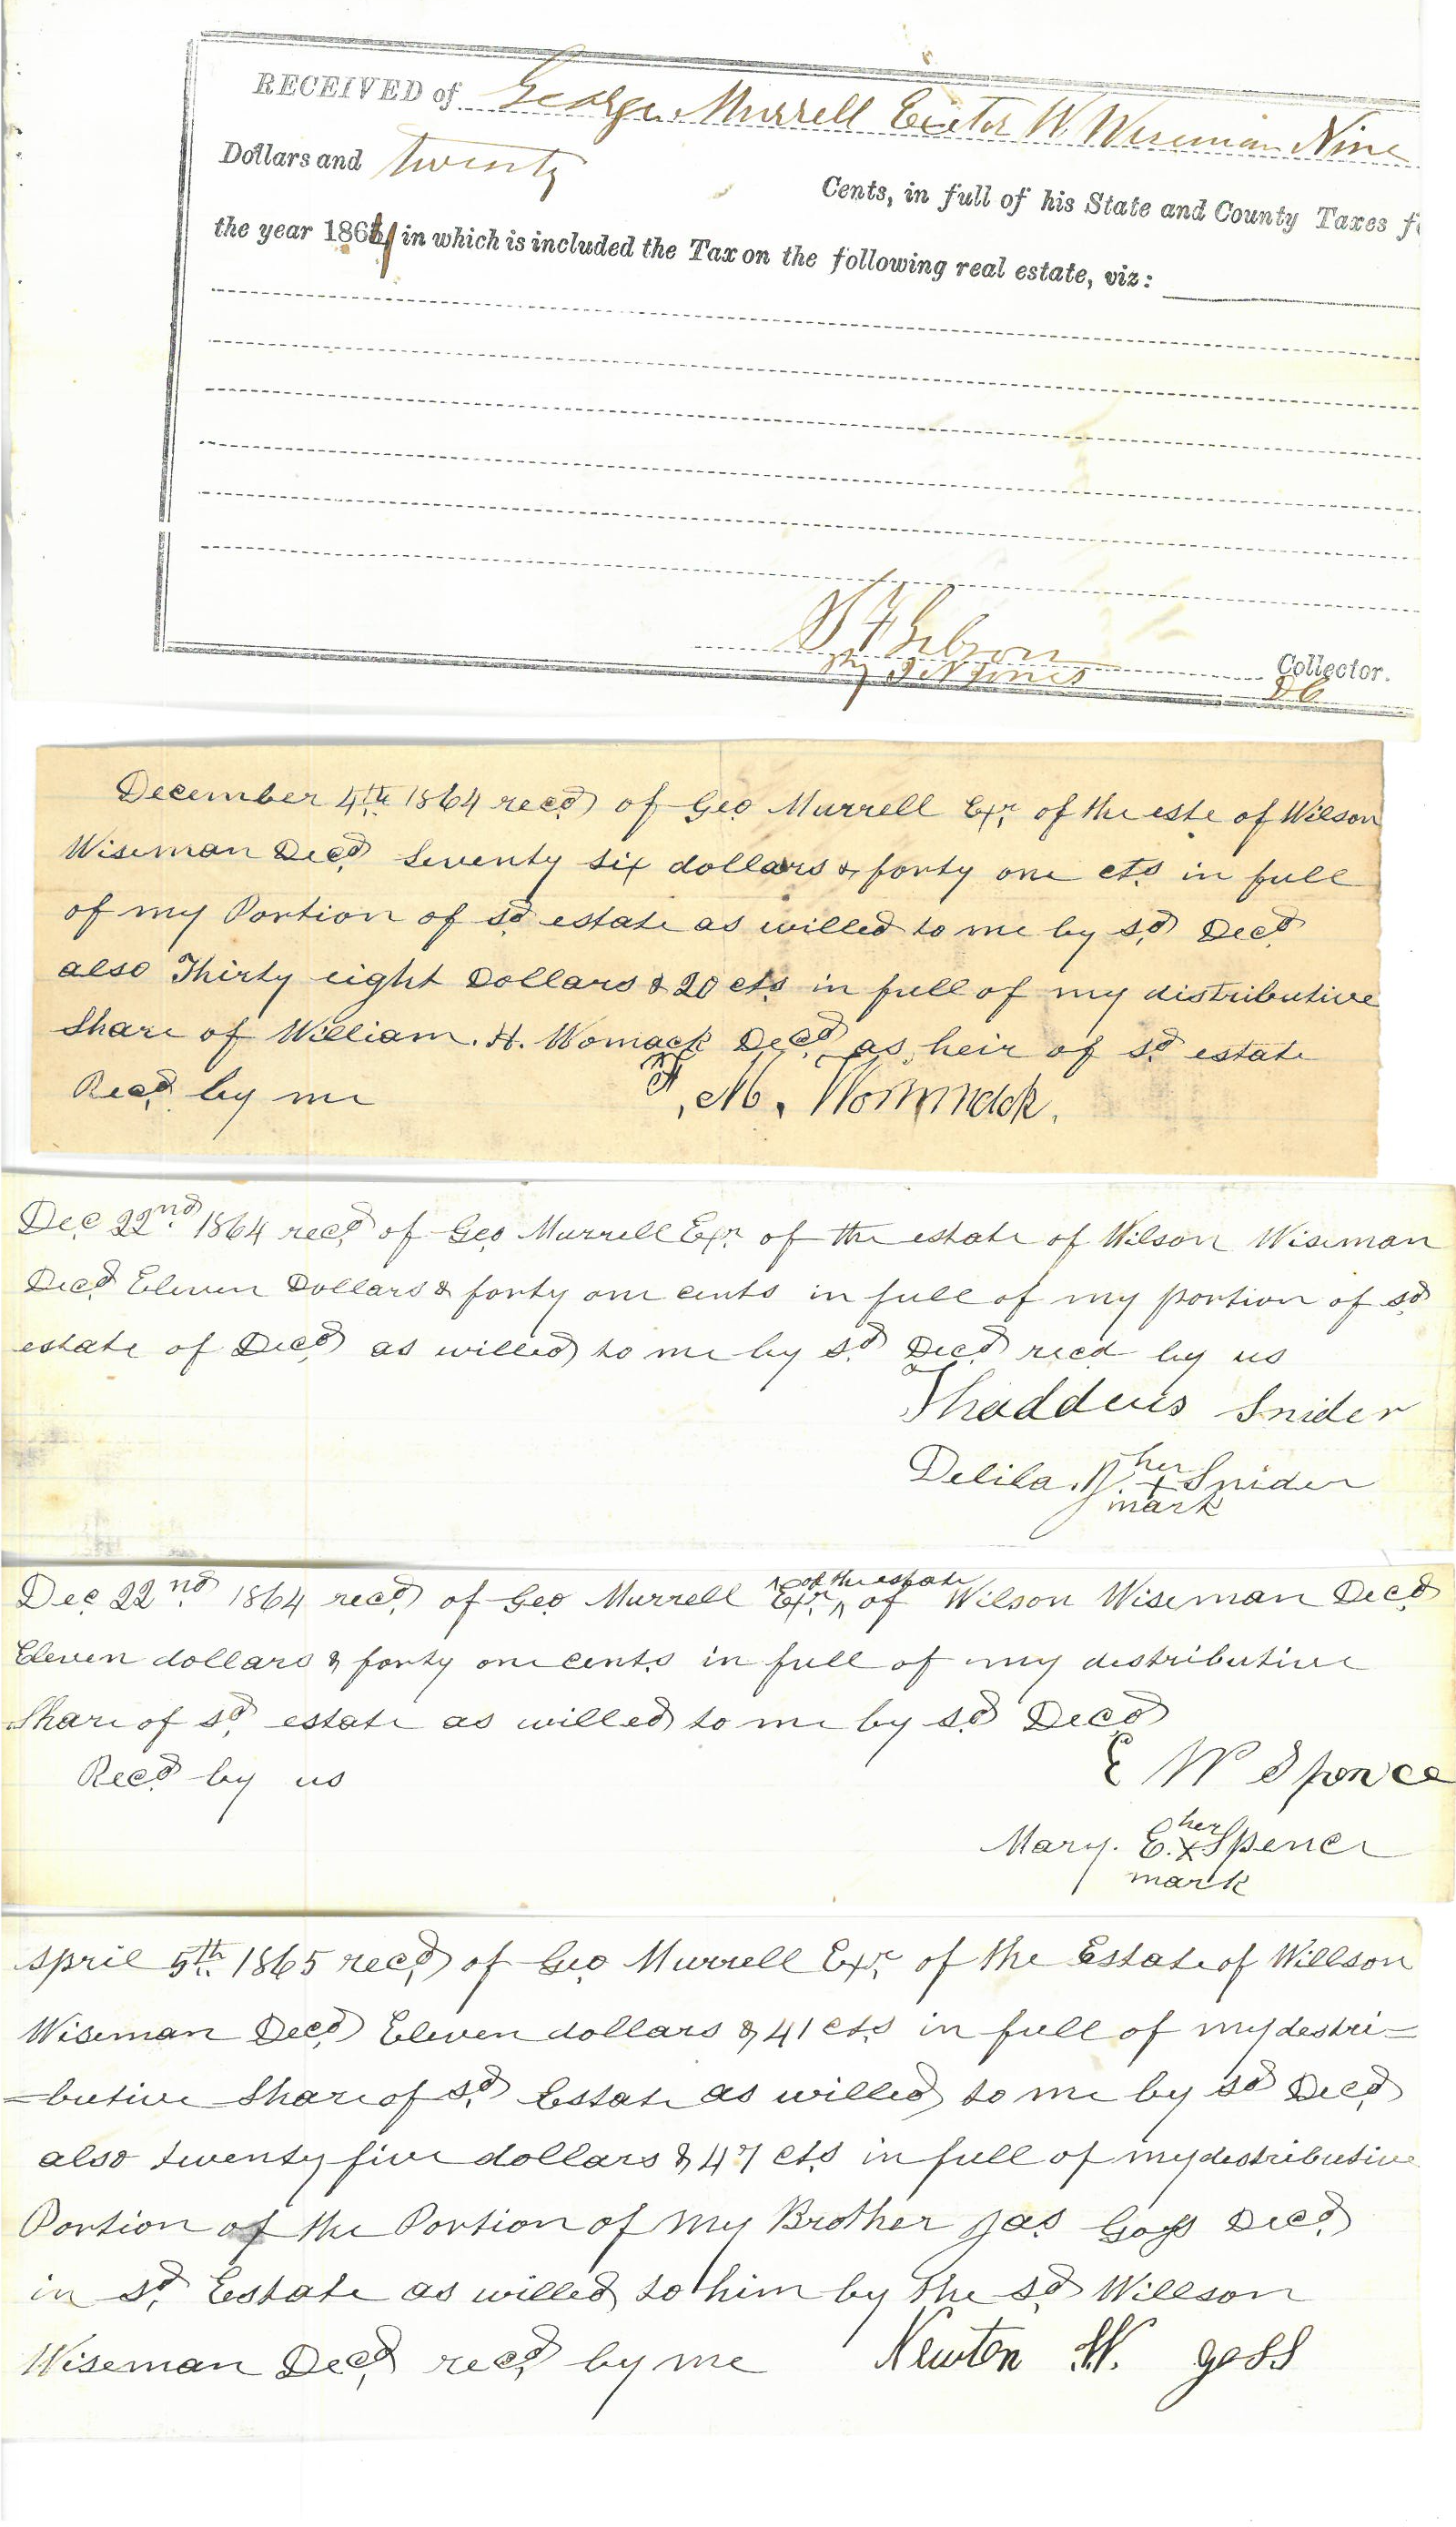 RECEIVED of George Murrell Exetor W. Wiseman Nine
Dollars and twenty Cents, in full of his State and County Taxes f
the year 1864 in which is included the Tax on the following real estate, viz:
S F Gibson
by J N Jones Collector.
DC
December 4th 1864 recd of Geo Murrell Exr of the este of Wilson
Wiseman Decd Seventy six dollars & forty one cts in full
of my Portion of sd estate as willed to me by sd Decd
also Thirty eight Dollars & 20 cts in full of my distributive
Share of William. H. Womack Decd as heir of sd estate
Recd by me F. M. Wommack.
Dec 22nd 1864 recd of Geo Murrell Exr of the estate of Wilson Wiseman
Decd Eleven Dollars & forty one cents in full of my portion of sd
estate of Decd as willed to me by sd Decd recd by us
Thaddeus Snider
Delila. J. her + Snider
mark
Dec 22nd 1864 recd of Geo Murrell Exr of the estate of Wilson Wiseman Decd
Eleven dollars & forty one cents in full of my distributive
Share of sd estate as willed to me by sd Decd
Recd by us E W Spence
Mary. E. her x Spence
mark
April 5th 1865 recd of Geo Murrell Exr of the Estate of Willson
Wiseman Decd Eleven dollars & 41 cts in full of my destri=
=butive Share of sd Estate as willed to me by sd Decd
also twenty five dollars & 47 cts in full of my distributive
Portion of the Portion of my Brother Jas Goss Decd
in sd Estate as willed to him by the sd Willson
Wiseman Decd recd by me Newton W. goss